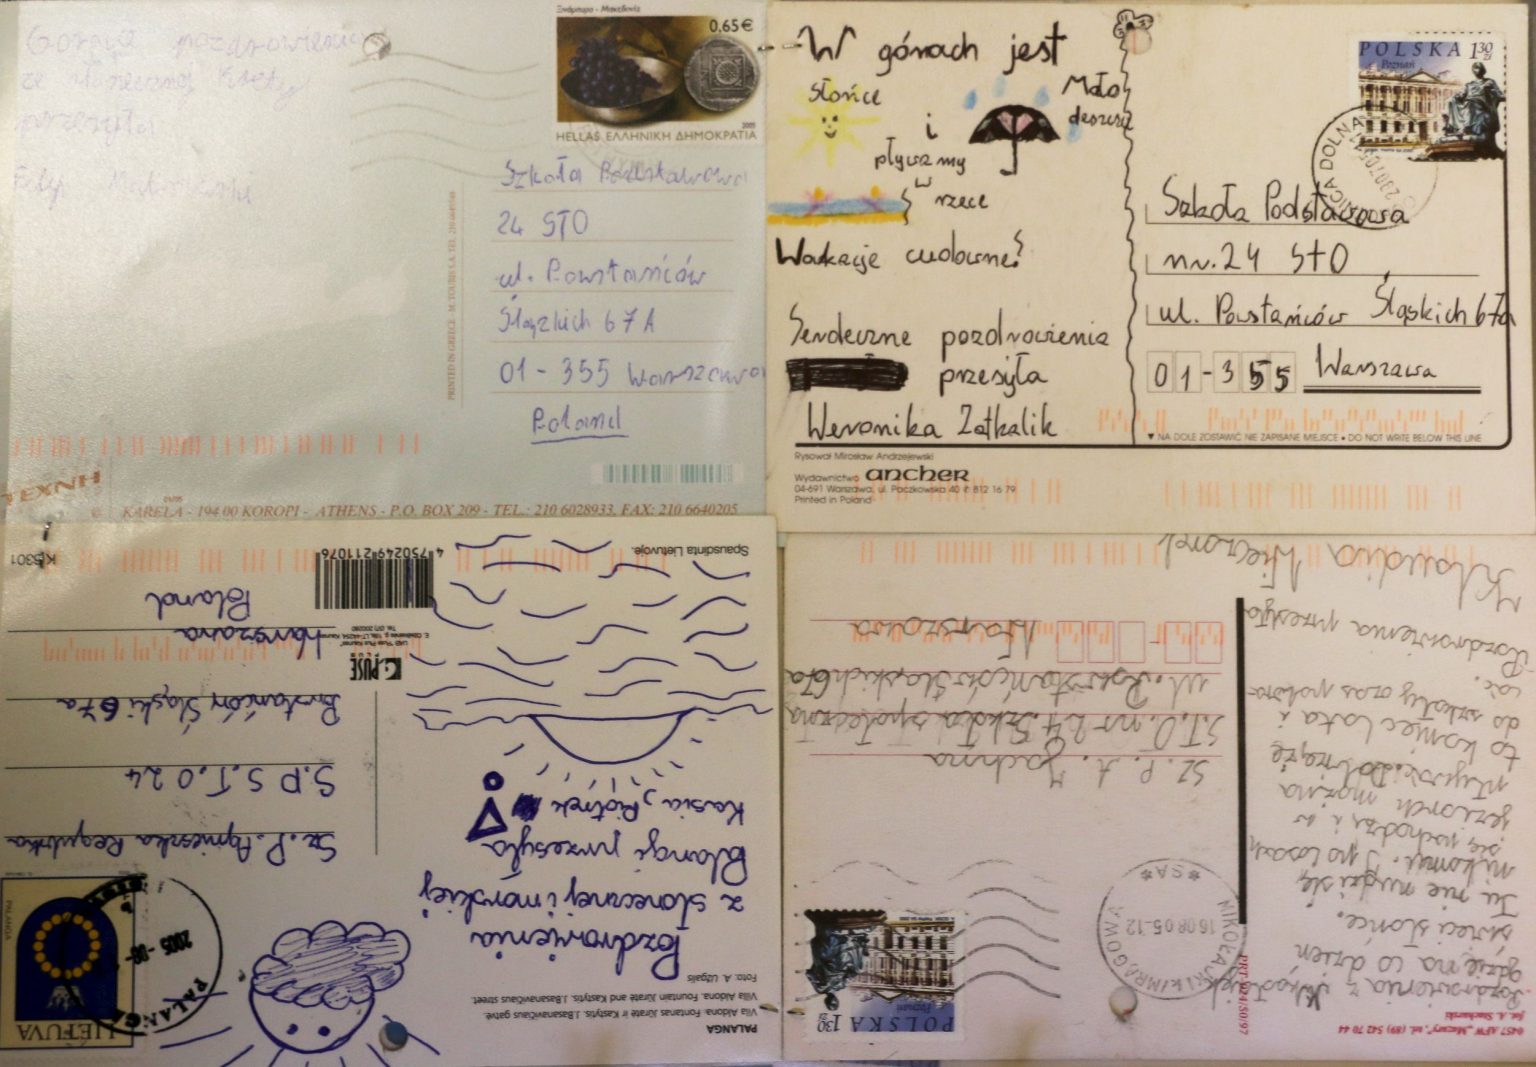 Gorące pozdrowienia
ze słonecznej Krety
przesyła
Ξινόμαυρο - Μακεδονία
0,65€
2005
HELLAS ΕΛΛΗΝΙΚΗ ΔΗΜΟΚΡΑΤΙΑ
Szkoła Podstawowa
24 STO
ul. Powstańców
Śląskich 67A
01-355 Warszawa
Poland
PRINTED IN GREECE - M. TOUBIS S.A. TEL. 210 6649548
ΤΕΧΝΗ
© KARELA - 194 00 KOROPI - ATHENS - P.O. BOX 209 - TEL.: 210 6028933, FAX: 210 6640205
W górach jest
słońce
i
Mało
deszczu
pływamy
w
rzece
Wakacje cudowne!
Serdeczne pozdrowienia
przesyła
Weronika Zatkalik
POLSKA 130 zł
Poznań
Szkoła Podstawowa
nr. 24 STO
ul. Powstańców Śląskich 67a
01-355 Warszawa
▼ NA DOLE ZOSTAWIĆ NIE ZAPISANE MIEJSCE • DO NOT WRITE BELOW THIS LINE
Rysował Mirosław Andrzejewski
Wydawnictwo ancher
04-691 Warszawa, ul. Paczkowska 40 ✆ 812 16 79
Printed in Poland
PALANGA
Vila Aldona. Fontanas Jūratė ir Kastytis. J.Basanavičiaus gatvė.
Villa Aldona. Fountain Jūratė and Kastytis. J.Basanavičiaus street.
Foto: A. Užgalis
Pozdrowienia
z słonecznej i morskiej
Palangi przesyła
Kasia, Piotrek
i
LIETUVA
PALANGA
2005-08-
Sz. P. Agnieszka Regulska
S.P S.T.O 24
Powstańców Śląski 67a
Warszawa
Poland
MUSĖ
4 750249 211076
Spausdinta Lietuvoje.
K 5301
0457 AFW „Mazury”, ul. (89) 542 70 44
fot. A. Stachurski
PRT-924/50/97
Pozdrowienia z
gdzie na co dzień
świeci słońce.
Tu nie nudzi się
nikomu. I po lasach
się pochodzi, i w
jeziorach można
pływać. Dobrze, że
to koniec lata i
do szkoły czas
Pozdrowienia przesyła
Klaudia Wieczorek
POLSKA 130 zł
Poznań
MIKOŁAJKI K/MRĄGOWA
16.08.05-12
*SA*
Sz. P. A. Jachna
S.T.O. nr 24 Szkoła społeczna
ul. Powstańców Śląskich 67a
Warszawa